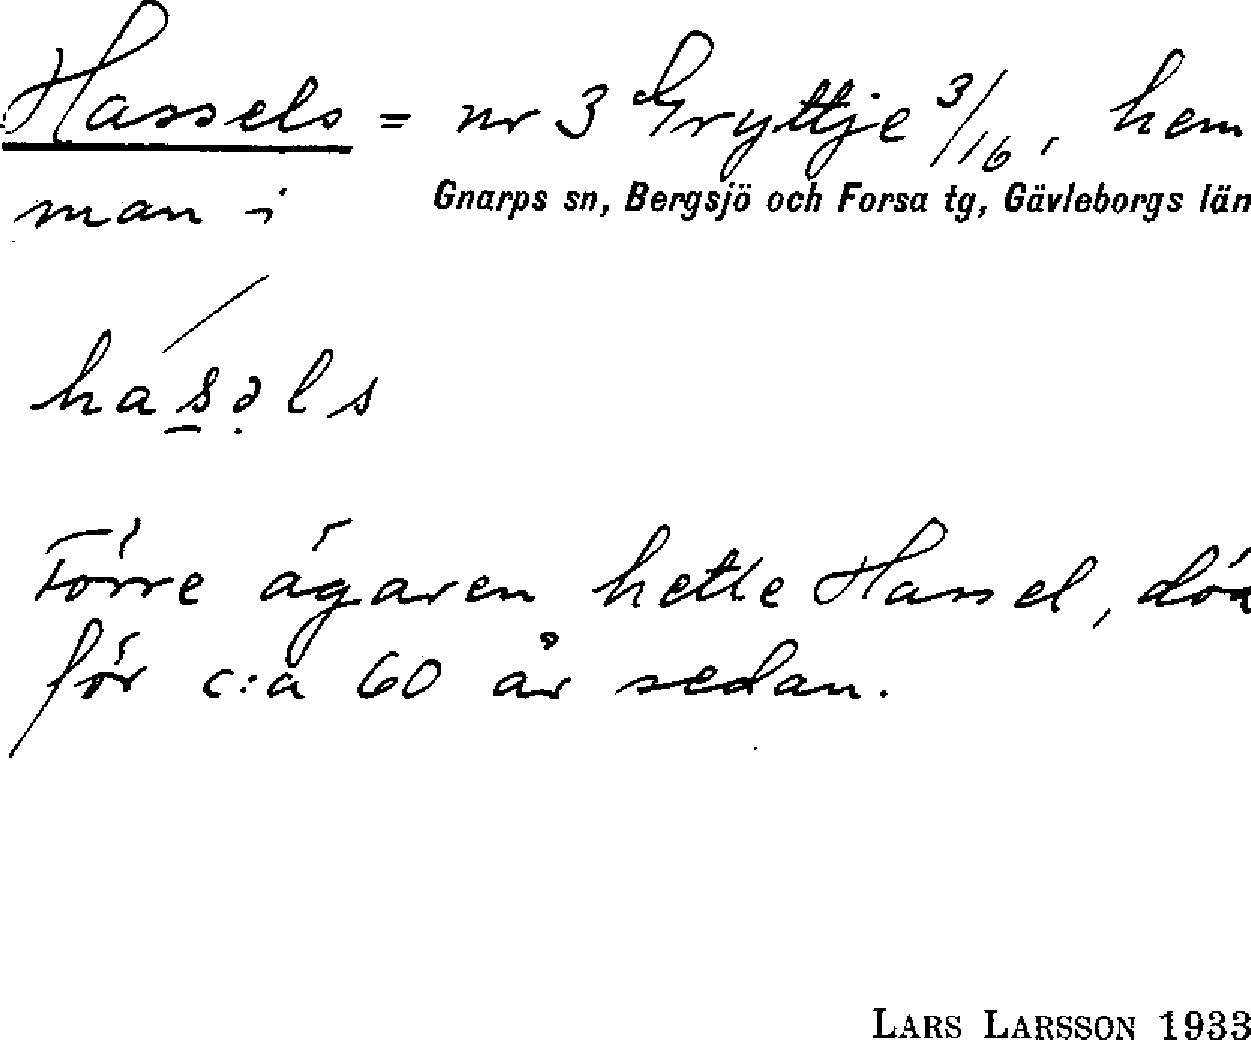 Hassels = nr 3 Gryttje 3/16, hem
man i Gnarps sn, Bergsjö och Forsa tg, Gävleborgs län
hasəls
Förre ägaren hette Hassel, död
för c:a 60 år sedan.
LARS LARSSON 1933